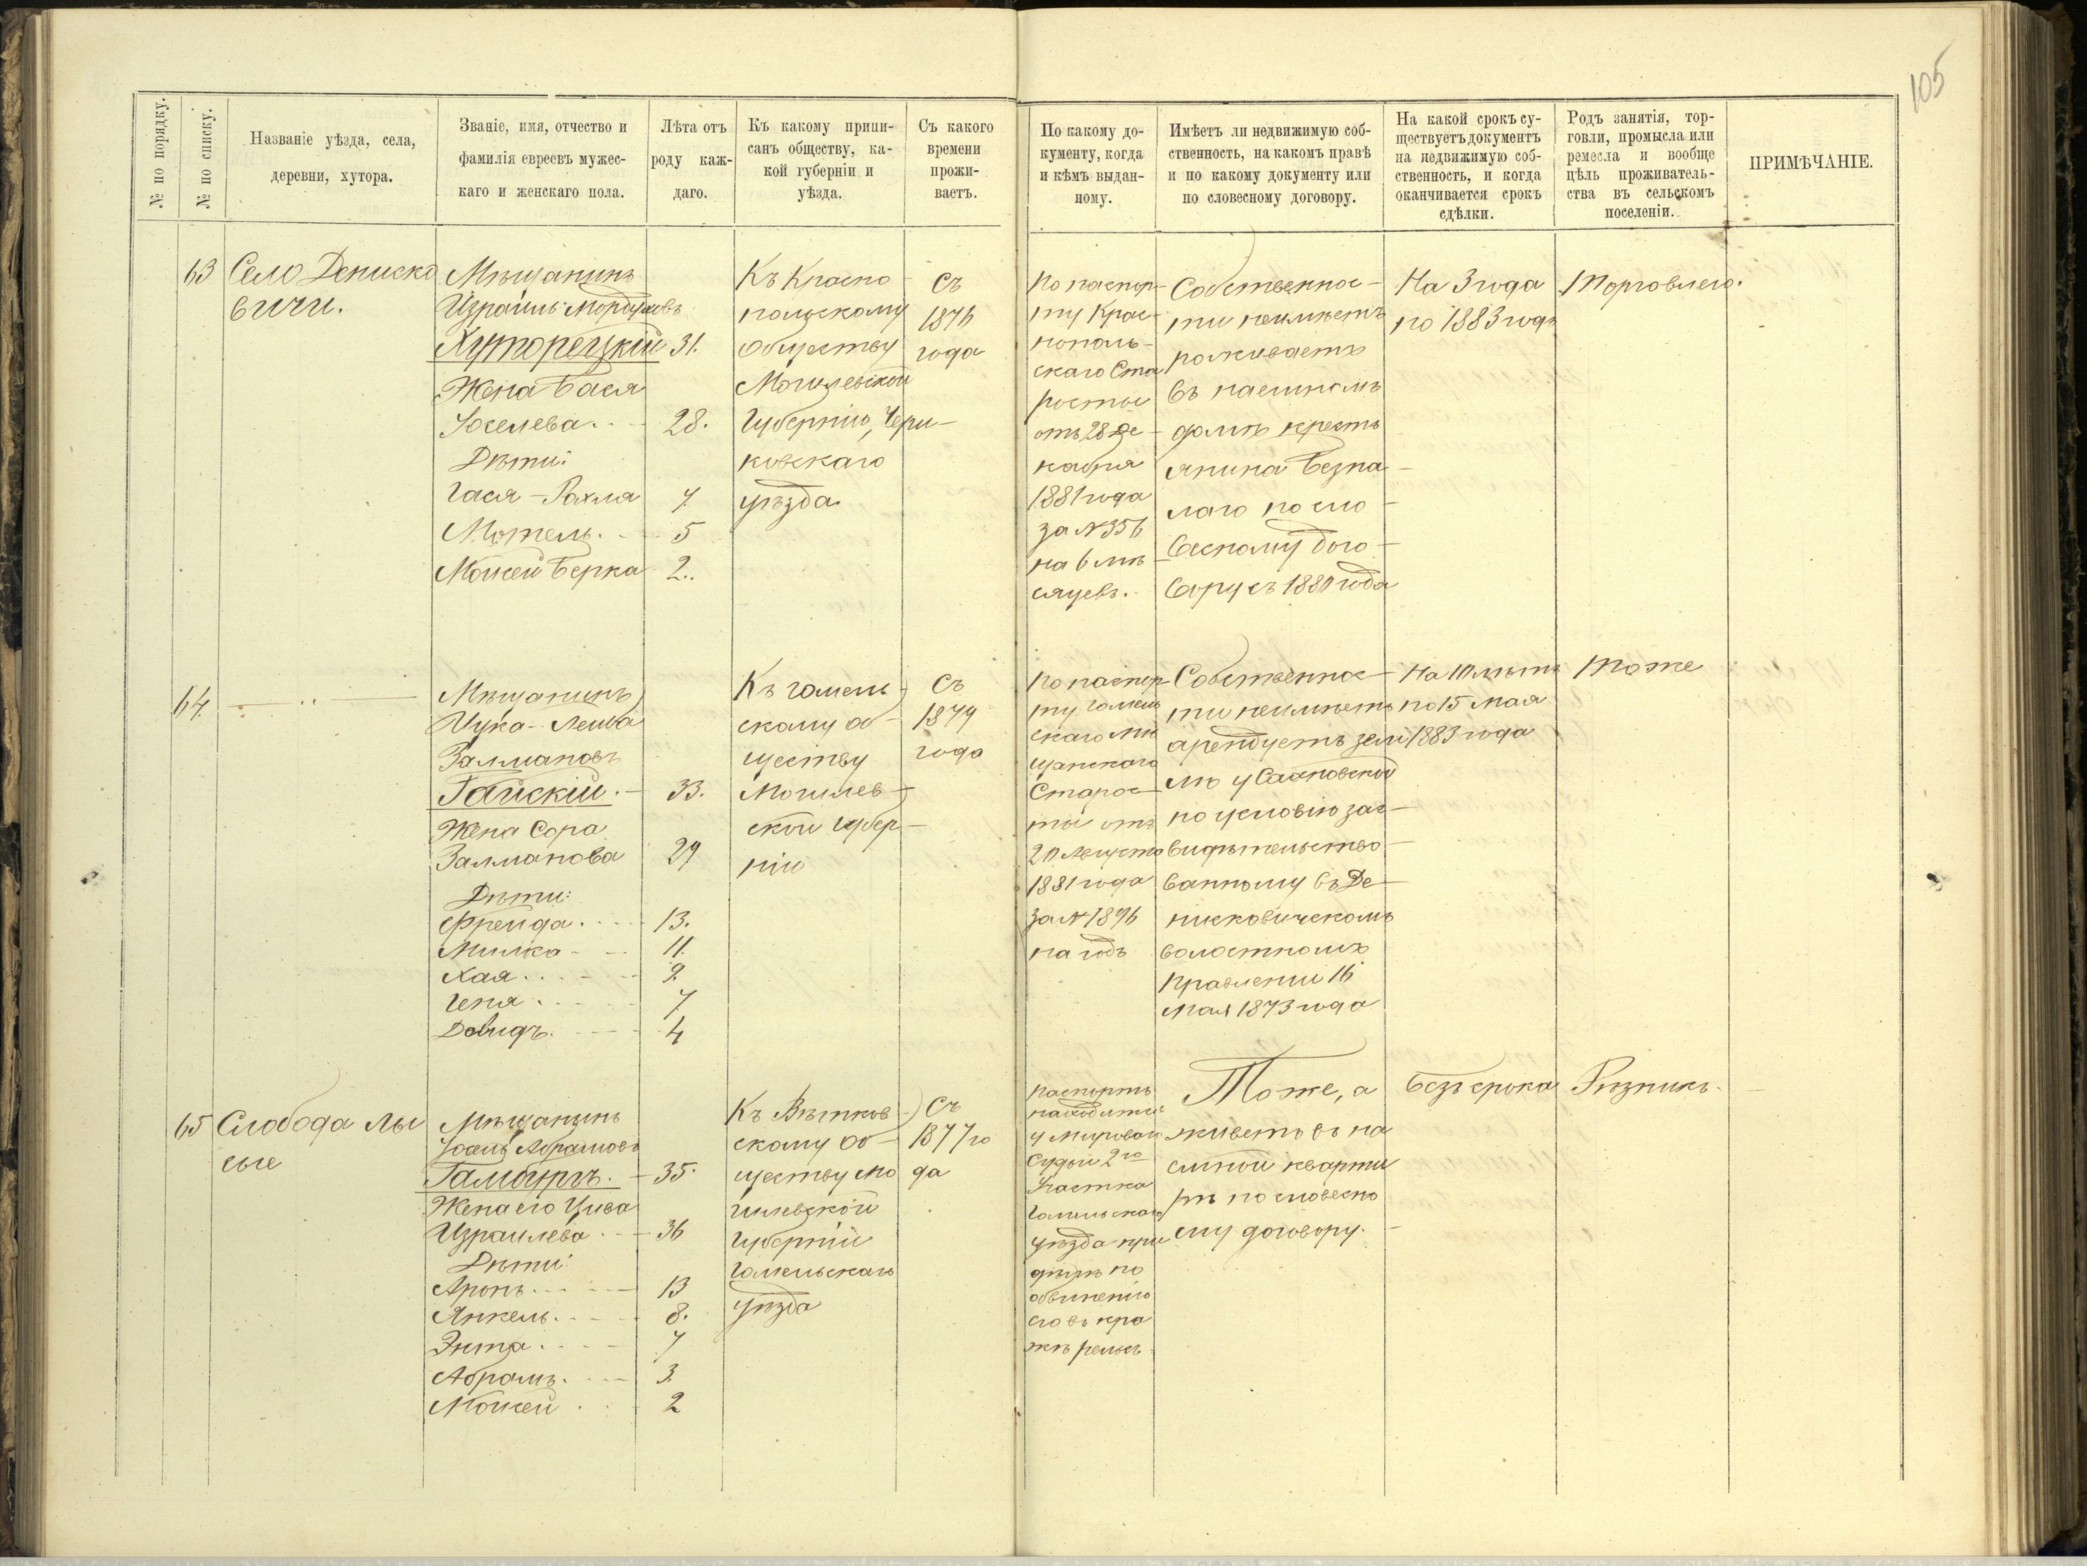 105
№ по порядку.
№ по списку.
Названіе уѣзда, села,
деревни, хутора.
Званіе, имя, отчество и
фамилія евреевъ мужес-
каго и женскаго пола.
Лѣта отъ
роду каж-
даго.
Къ какому припи-
санъ обществу, ка-
кой губерніи и
уѣзда.
Съ какого
времени
прожи-
ваетъ.
По какому до-
кументу, когда
и кѣмъ выдан-
ному.
Имѣетъ ли недвижимую соб-
ственность, на какомъ правѣ
и по какому документу или
по словесному договору.
На какой срокъ су-
ществуетъ документъ
на недвижимую соб-
ственность, и когда
оканчивается срокъ
сдѣлки.
Родъ занятія, тор-
говли, промысла или
ремесла и вообще
цѣль проживатель-
ства въ сельскомъ
поселеніи.
ПРИМѢЧАНІЕ.
63
Село Дениско
вичи.
Мѣщанинъ
Израиль Мордуховъ
Хуторецкій 31.
Жена Бася
Іоселева. 28.
Дѣти:
Гася-Рохля 7
Мотель. 5
Мовшей Берка 2..
Къ Красно
польскому
обществу
Могилевской
Губерніи, Чери-
ковскаго
уѣзда
Съ
1876
года
По паспор-
ту Крас-
нополь-
скаго Ста
росты
отъ 28 Де-
кабря
1881 года
за № 356
на 6 мѣ-
сяцевъ.
Собственнос-
ти неимѣетъ
проживаетъ
въ наемномъ
домѣ кресть
янина Безпа-
лаго по сло-
весному дого-
вору съ 1880 года
На 3 года
по 1883 годъ
Торговлею.
64
Мѣщанинъ
Ицка-Лейба
Залмановъ
Гайскій. 33.
Жена Сора
Залманова 29
Дѣти:
Фрейда. 13.
Милка 11.
Хая 9.
Геня 7
Довидъ. 4
Къ Гомель-
скому об-
ществу
Могилев-
ской губер-
ніи
Съ
1879
года
По паспор
ту Гомель
скаго мѣ
щанскаго
Старос-
ты отъ
20 Августа
1881 года
за № 1896
на годъ
Собственнос-
ти неимѣетъ
арендуетъ зем
лю у
по условію зас-
видѣтельство-
ванному въ Де-
нисковическомъ
волостномъ
Правленіи 16
Мая 1873 года
На 10 лѣтъ
по 15 Мая
1883 года
Тоже
65
Слобода Лы
сые
Мѣщанинъ
Іосель Абрамовъ
Гамбургъ. 35.
Жена его Цива
Израилева. 36
Дѣти:
Аронъ. 13
Янкель. 8.
Энта. 7
Абрамъ. 3.
Мовшей 2
Къ Вѣтков-
скому об-
ществу Мо
гилевской
Губерніи
Гомельскаго
уѣзда
Съ
1877 го
да
Паспортъ
находится
у Мироваго
Судьи 2го
Участка
Гомельскаго
уѣзда при
дѣлѣ по
обвиненію
его въ кра
жѣ рельсъ
Тоже, а
живетъ въ на
емной кварти
рѣ по словесно
му договору.
безъ срока
Рѣзникъ.